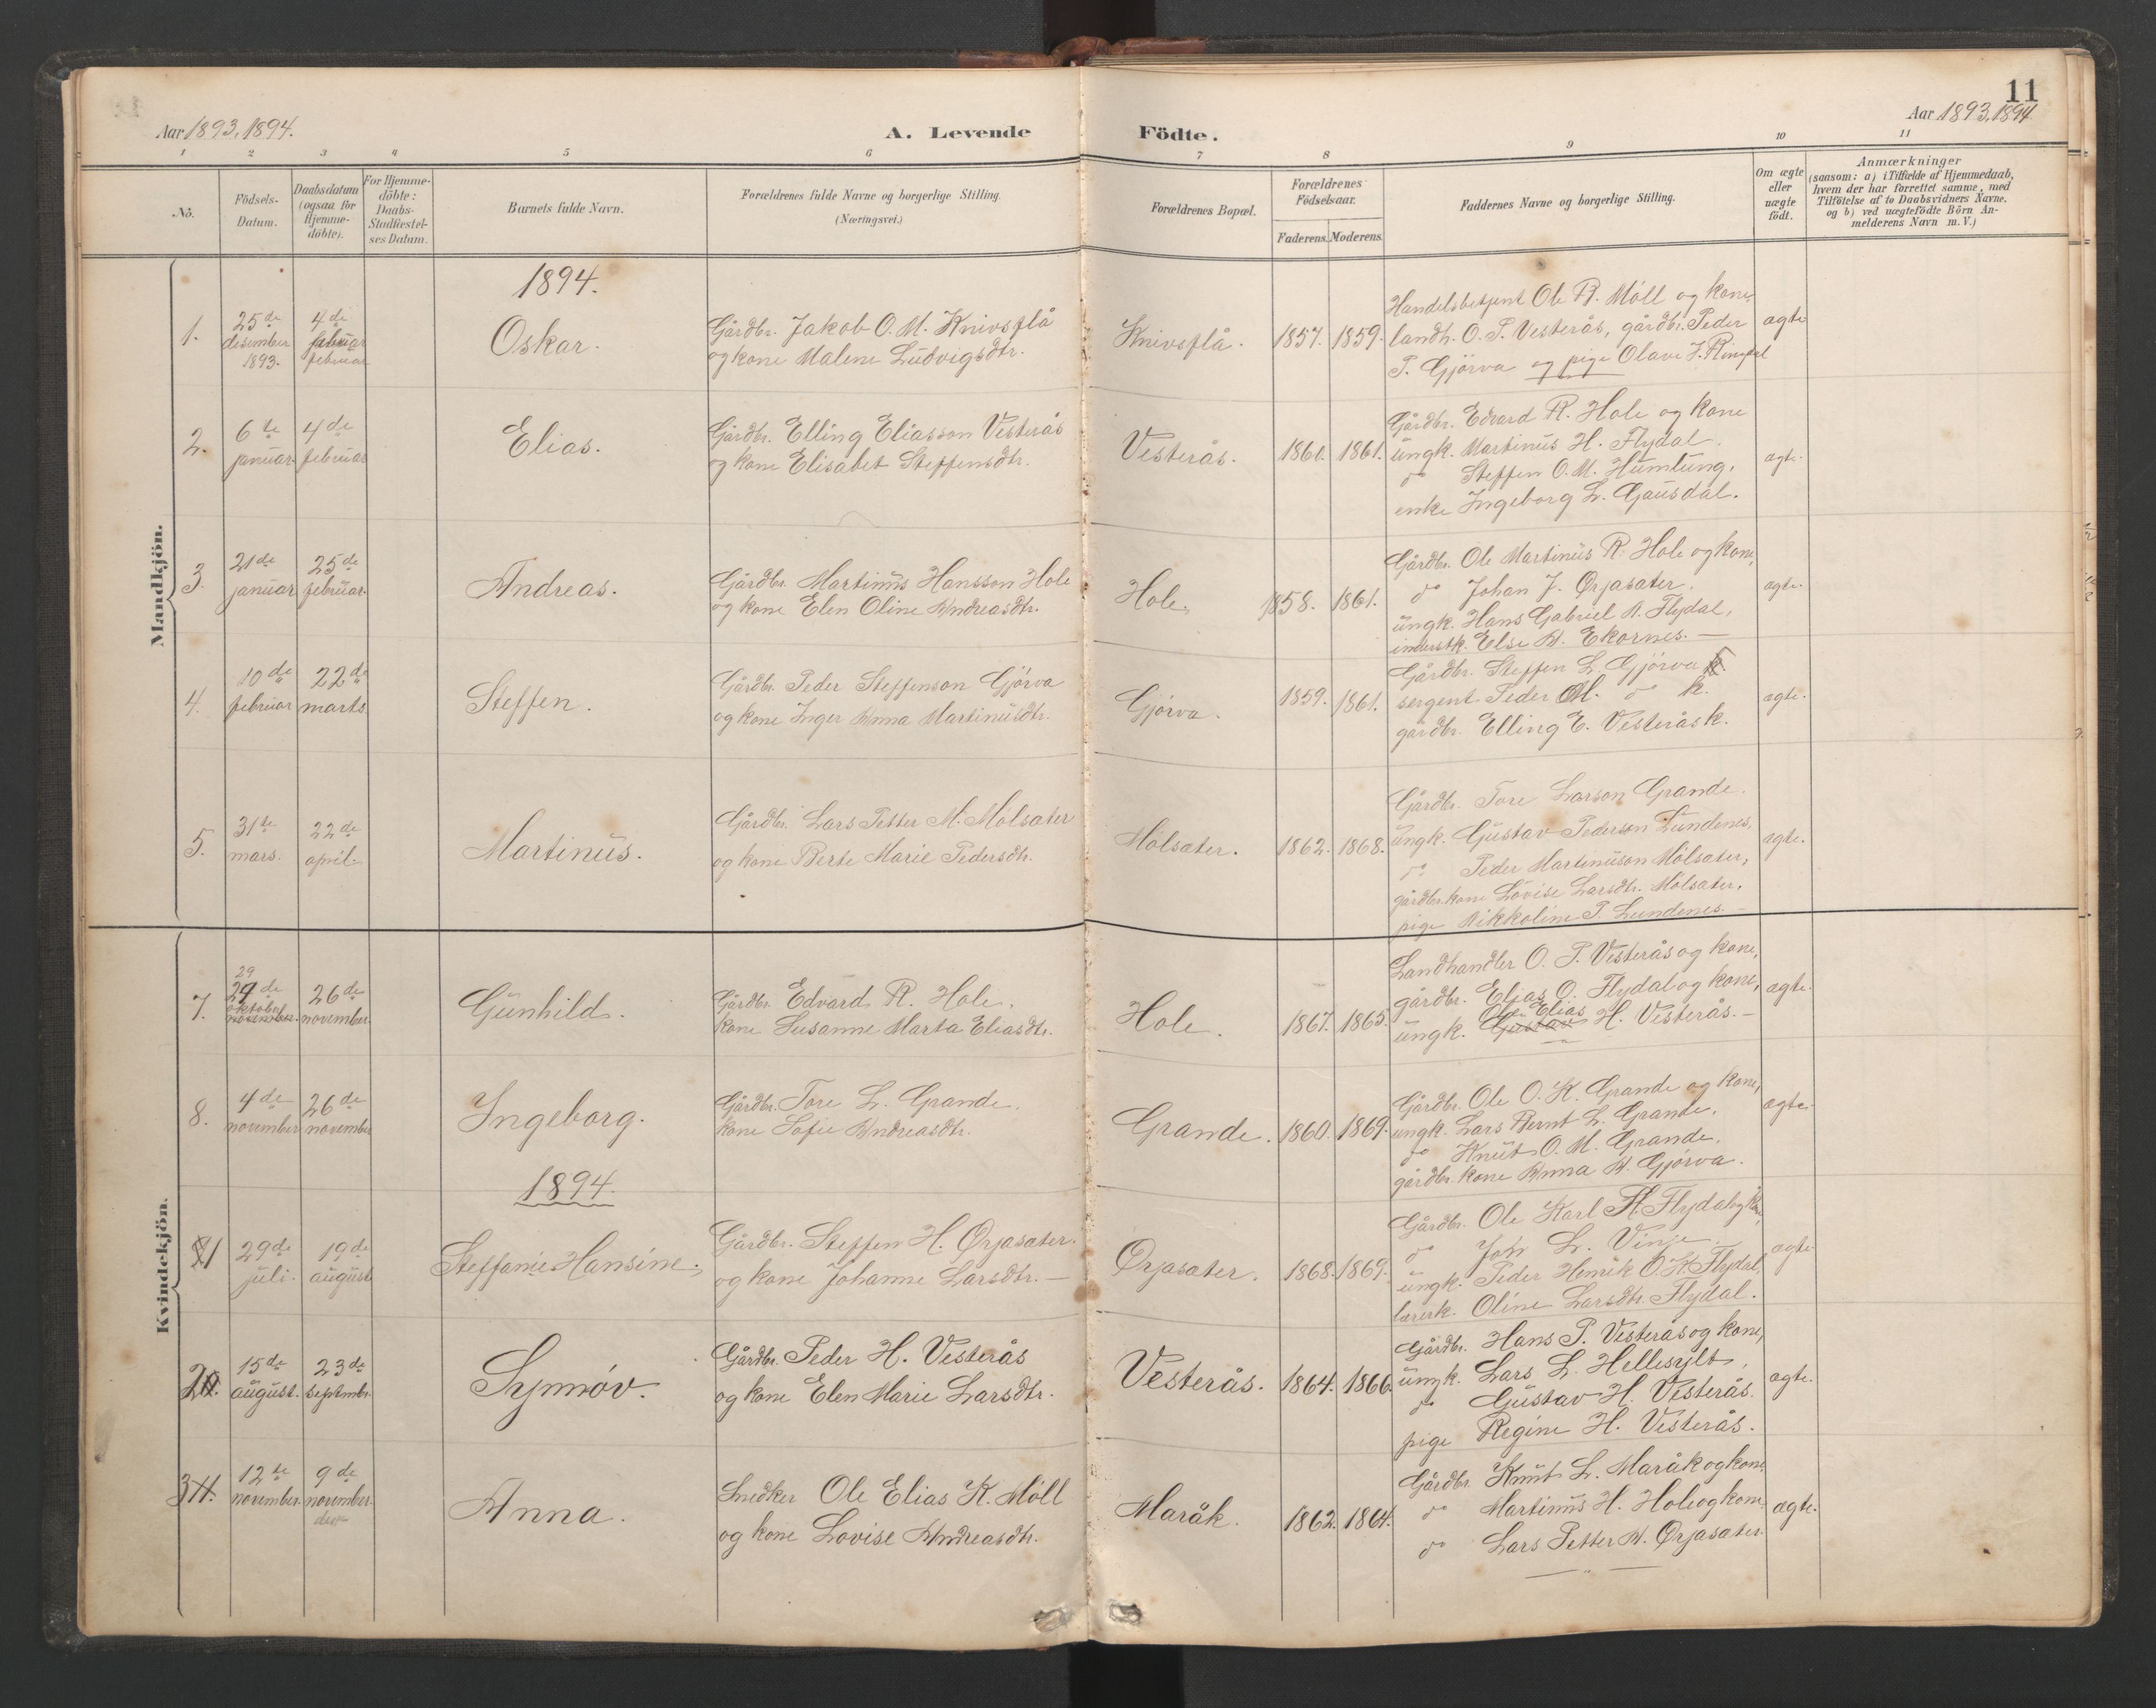 11
Aar 1893, 1894.
A. Levende
Födte.
Aar 1893, 1894
1 2 3 4 5 6 7 8 9 10 11
No.
Födsels-
Datum.
Daabsdatum
(ogsaa for
Hjemme-
döbte).
For Hjemme-
döbte:
Daabs-
Stadfæstel-
ses Datum.
Barnets fulde Navn.
Forældrenes fulde Navne og borgerlige Stilling.
(Næringsvei.)
Forældrenes Bopæl.
Forældrenes
Födselsaar.
Faderens. Moderens.
Faddernes Navne og borgerlige Stilling.
Om ægte
eller
uægte
födt.
Anmærkninger
(saasom: a) i Tilfælde af Hjemmedaab,
hvem der har forrettet samme, med
Tilföielse af to Daabsvidners Navne.
og b) ved uægtefödte Börn An-
melderens Navn m. V.)
Mandkjön.
1894.
1.
25de
desember
1893.
4de
februar
februar
Oskar.
Gårdbr. Jakob O. M. Knivsflå
og kone Malene Ludvigsdtr.
Knivsflå.
1857. 1859.
Handelsbetjent Ole R. Möll og kone,
landh. O. P. Vesterås, gårdbr. Peder
P. Gjörva og pige Olave J. Ringdal
ægte
2.
6te
januar.
4de
februar
Elias.
Gårdbr. Elling Eliasson Vesterås
og kone Elisabet Steffensdtr.
Vesterås.
1860. 1861.
Gårdbr. Edvard R. Hole og kone
ungk. Martinus H. Flydal.
do Steffen O. M. Humlung,
enke Ingeborg L. Gausdal.
ægte.
3.
21de
januar
25de
februar.
Andreas.
Gårdbr. Martinus Hansson Hole
og kone Elen Oline Andreasdtr.
Hole.
1858. 1861.
Gårdbr. Ole Martinus R. Hole og kone,
do Johan J. Ørjasæter.
ungk. Hans Gabriel A. Flydal,
inderstk. Else A. Ekornes. —
ægte.
4.
10de
februar
22de
marts
Steffen.
Gårdbr. Peder Steffenson Gjörva
og kone Inger Anna Martinusdtr.
Gjörva.
1859. 1861.
Gårdbr. Steffen L. Gjörva k
sergent Peder M. do k.
gårdbr. Elling E. Vesterås k.
ægte.
5.
31te
mars.
22de
april.
Martinus.
Gårdbr. Lars Petter M. Mölsæter
og kone Berte Marie Pedersdtr.
Mölsæter.
1862. 1868.
Gårdbr. Tore Larson Grande.
ungk. Gustav Pederson Lundenes,
do Peder Martinuson Mölsæter,
gårdbr. kone Lovise Larsdtr. Mölsæter,
pige Nikkoline P. Lundenes. —
ægte.
Kvindekjön.
7.
29
29de
oktober
november.
26de
november.
Gunhild.
Gårdbr. Edvard R. Hole.
kone Susanne Marta Eliasdtr.
Hole.
1867. 1865.
Landhandler O. P. Vesterås og kone,
gårdbr. Elias O. Flydal og kone,
Ole Elias
ungk. Gustav H. Vesterås. —
ægte.
8.
4de
november
26de
november
Ingeborg.
Gårdbr. Tore L. Grande.
kone Sofie Andreasdtr.
Grande.
1860. 1869.
Gårdbr. Ole O. K. Grande og kone,
ungk. Lars Bernt L. Grande.
do Knut O. M. Grande.
gårdbr. kone Anna A. Gjörva.
ægte
1894.
1
29de
juli.
19de
august
Steffanie Hansine.
Gårdbr. Steffen H. Ørjasæter.
og kone Johanne Larsdtr. —
Ørjasæter.
1868. 1869.
Gårdbr. Ole Karl A. Flydal og kone,
do Joh L. Vinje.
ungk. Peder Henrik O. K. Flydal,
lærerk. Oline Larsdtr. Flydal.
ægte
2
15de
august.
23de
septmbr.
Synnöv.
Gårdbr. Peder H. Vesterås
og kone Elen Marie Larsdtr.
Vesterås.
1864. 1866.
Gårdbr. Hans P. Vesterås og kone,
ungk. Lars L. Hellesylt,
do Gustav H. Vesterås.
pige Regine H. Vesterås.
ægte.
3 11.
12te
november.
9de
november.
Anna.
Snedker Ole Elias K. Möll
og kone Lovise Andreasdtr.
Maråk.
1862. 1864.
Gårdbr. Knut L. Maråk og kone
do Martinus H. Hole og kone
do Lars Petter A. Ørjasæter.
ægte.